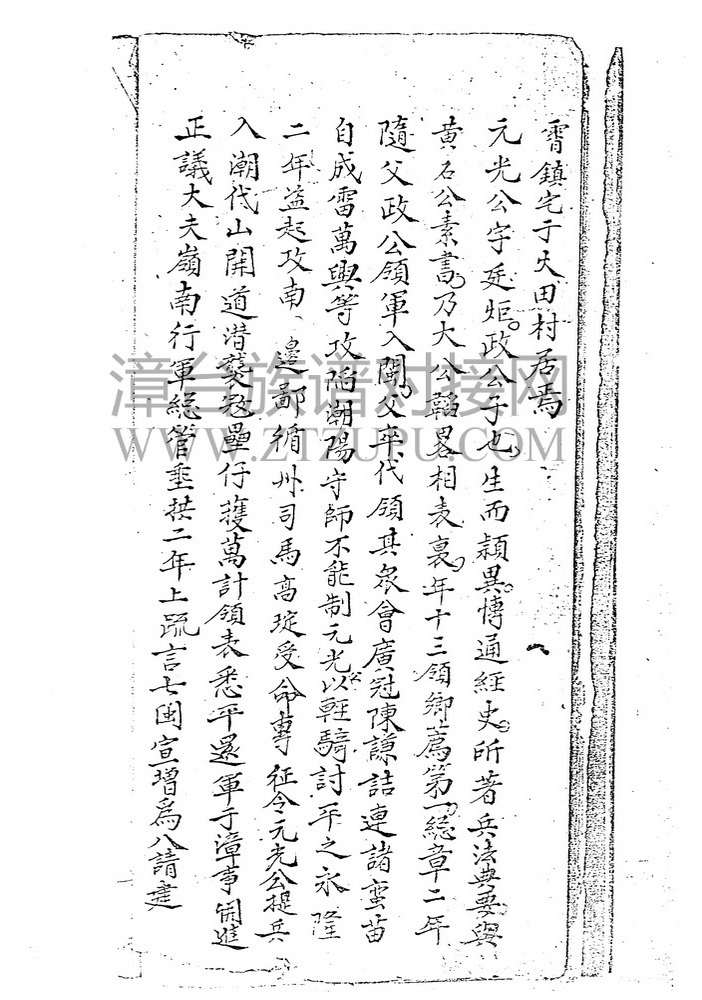 霄鎮宅于火田村居焉
元光公字廷炬政公子也生而穎異博通經史所著兵法典要與
黄石公素書乃大公韜畧相表裏年十三領鄉薦第一總章二年
隨父政公領軍入閩父卒代領其眾會廣冦陳謙詰連諸蛮苗
自成雷萬興等攻陷潮陽守師不能制元光以輕騎討平之永隆
二年盗起攻南邊鄙循州司馬高琔受命專征令元光公提兵
入潮伐山開道潜襲宼壘仔獲萬計領表悉平還軍于漳事開進
正議大夫嶺南行軍總管垂拱二年上疏言七閩宜增爲八請建
漳台族谱对接网
WWW.ZTZUPU.COM